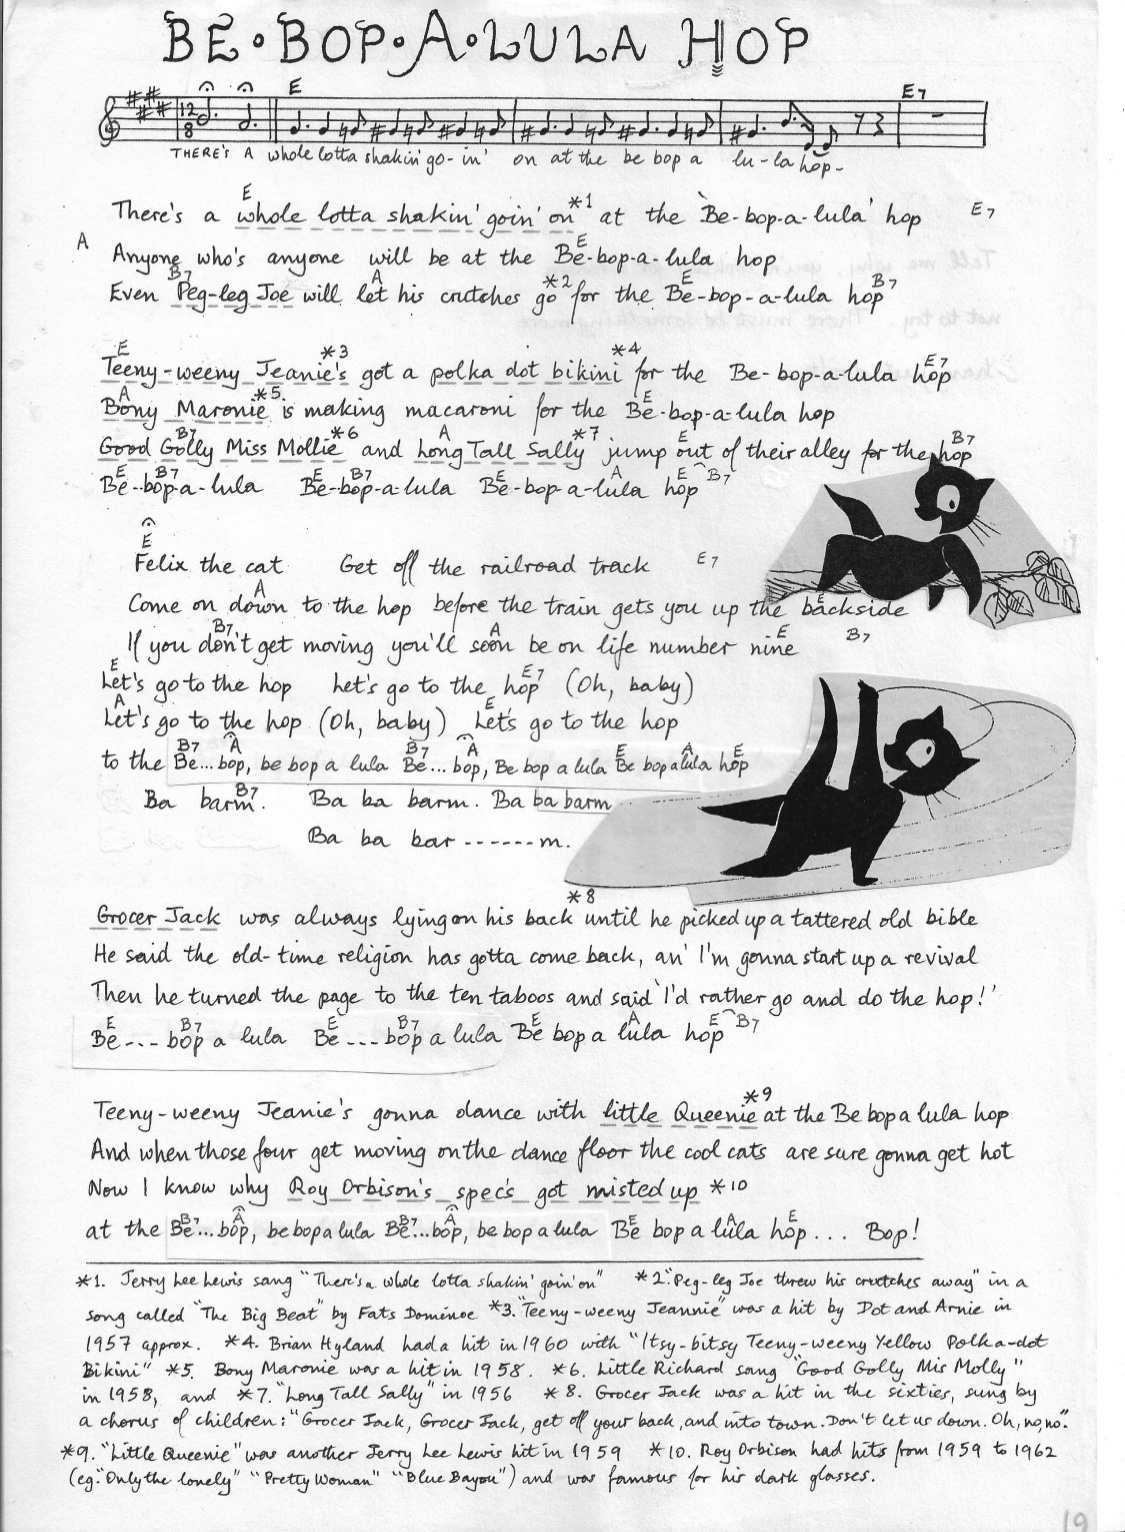 BE·BOP·A·LULA HOP
E E7
12
8
THERE'S A whole lotta shakin' go-in' on at the be bop a lu-la hop-
E
There's a whole lotta shakin' goin' on *1 at the 'Be-bop-a-lula' hop E7
A E
Anyone who's anyone will be at the Be-bop-a-lula hop
B7 A E B7
Even Peg-leg Joe will let his crutches go *2 for the Be-bop-a-lula hop
E E7
Teeny-weeny Jeanie's *3 got a polka dot bikini *4 for the Be-bop-a-lula hop
A E
Bony Maronie *5. is making macaroni for the Be-bop-a-lula hop
B7 A E B7
Good Golly Miss Mollie *6 and Long Tall Sally *7 jump out of their alley for the hop
E B7 E B7 E A E B7
Be--bop-a-lula Be-bop-a-lula Be-bop-a-lula hop
E
Felix the cat Get off the railroad track E7
A E
Come on down to the hop before the train gets you up the backside
B7 A E B7
If you don't get moving you'll soon be on life number nine
E E7
Let's go to the hop Let's go to the hop (Oh, baby)
A E
Let's go to the hop (Oh, baby) Let's go to the hop
B7 A B7 A E A E
to the Be... bop, be bop a lula Be... bop, Be bop a lula Be bop a lula hop
B7
Ba barm. Ba ba barm. Ba ba barm
Ba ba bar ------ m.
Grocer Jack was always lying on his back *8 until he picked up a tattered old bible
He said the old-time religion has gotta come back, an' I'm gonna start up a revival
Then he turned the page to the ten taboos and said 'I'd rather go and do the hop!'
E B7 E B7 E A E B7
Be --- bop a lula Be --- bop a lula Be bop a lula hop
Teeny-weeny Jeanie's gonna dance with little Queenie *9 at the Be bop a lula hop
And when those four get moving on the dance floor the cool cats are sure gonna get hot
Now I know why Roy Orbison's spec's got misted up *10
B7 A B7 A E A E
at the Be... bop, be bop a lula Be... bop, be bop a lula Be bop a lula hop... Bop!
*1. Jerry Lee Lewis sang "There's a whole lotta shakin' goin' on" *2. "Peg-leg Joe threw his crutches away" in a
song called "The Big Beat" by Fats Dominoe *3. "Teeny-weeny Jeannie" was a hit by Dot and Arnie in
1957 approx. *4. Brian Hyland had a hit in 1960 with "Itsy-bitsy Teeny-weeny Yellow Polk-a-dot
Bikini" *5. Bony Maronie was a hit in 1958. *6. Little Richard sang "Good Golly Mis Molly"
in 1958, and *7. "Long Tall Sally" in 1956 *8. Grocer Jack was a hit in the sixties, sung by
a chorus of children: "Grocer Jack, Grocer Jack, get off your back, and into town. Don't let us down. Oh, no, no".
*9. "Little Queenie" was another Jerry Lee Lewis hit in 1959 *10. Roy Orbison had hits from 1959 to 1962
(eg. "Only the lonely" "Pretty Woman" "Blue Bayou") and was famous for his dark glasses.
19